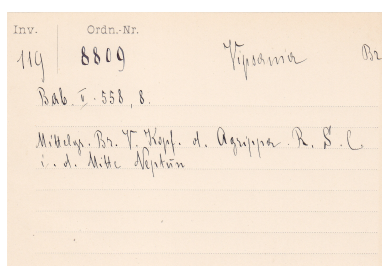 Inv. Ordn.-Nr.
119 8809 Vipsania Br
Bab. II. 558, 8.
Mittelgr. Br. V. Kopf. d. Agrippa. R. S. C
i. d. Mitte Neptun